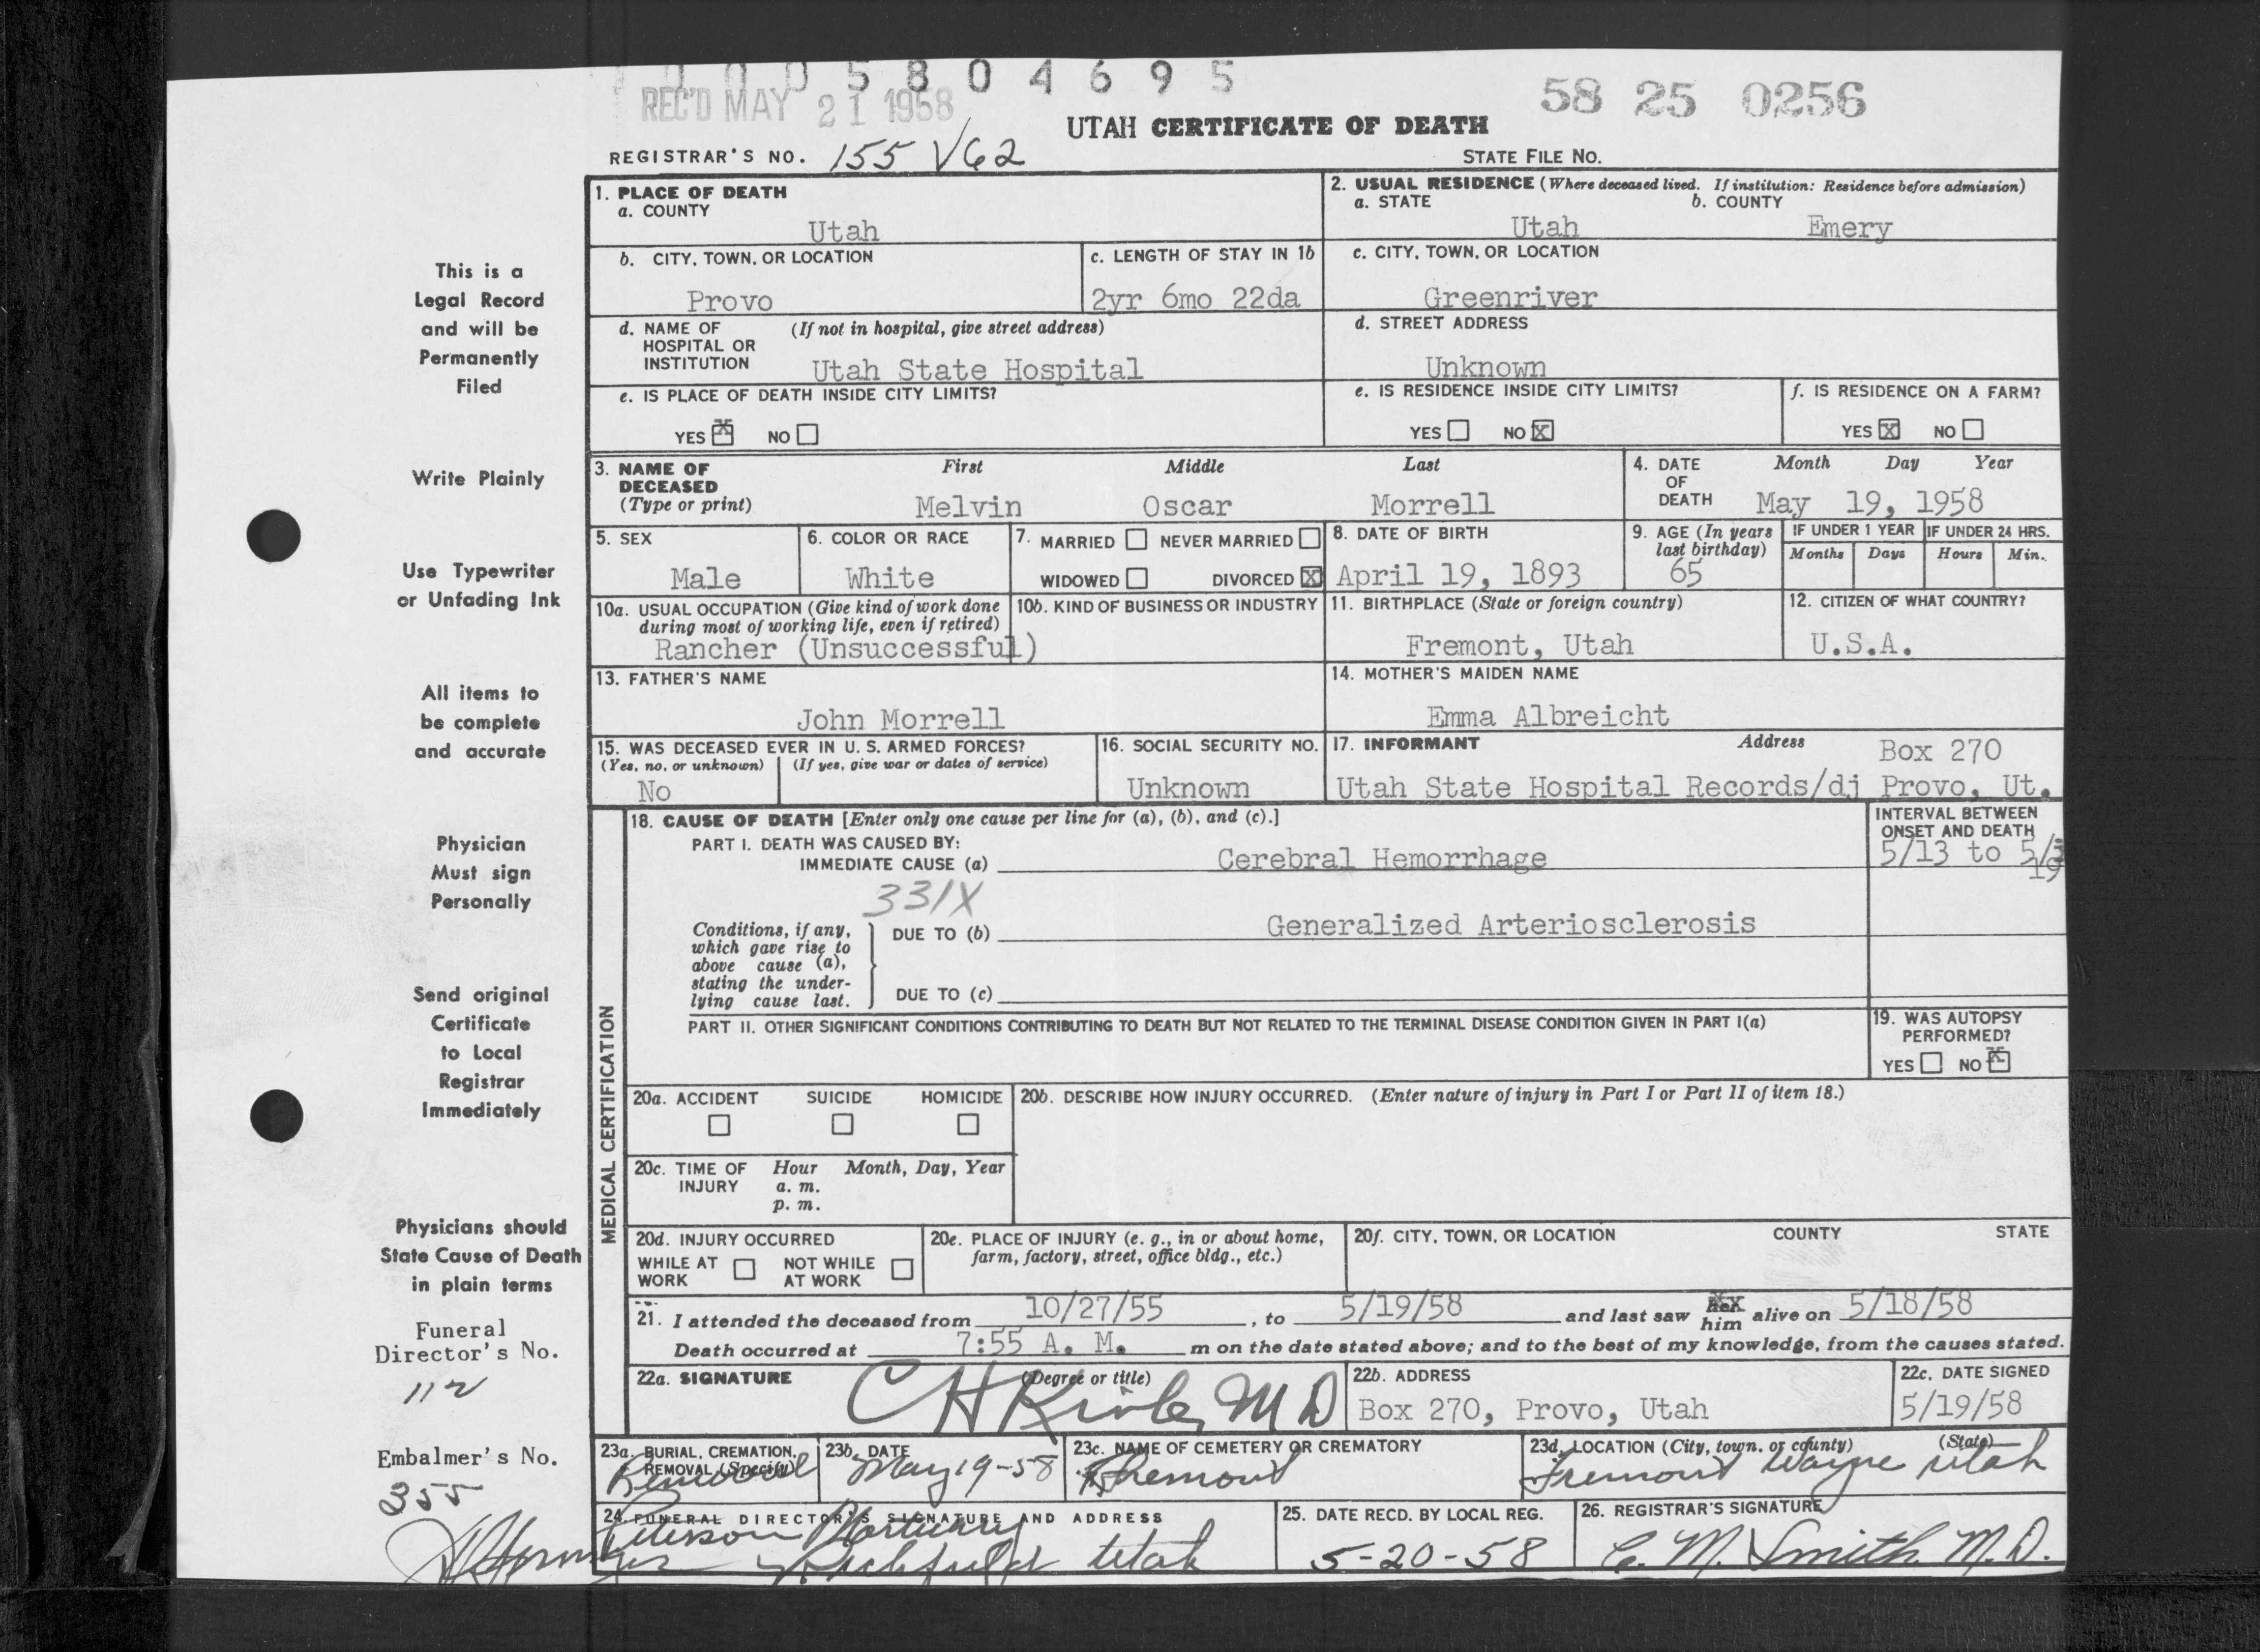 0 0 0 5 8 0 4 6 9 5
REC'D MAY 21 1958
58 25 0256
UTAH CERTIFICATE OF DEATH
REGISTRAR'S NO. 155 V62
STATE FILE NO.
This is a
Legal Record
and will be
Permanently
Filed
Write Plainly
Use Typewriter
or Unfading Ink
All items to
be complete
and accurate
Physician
Must sign
Personally
Send original
Certificate
to Local
Registrar
Immediately
Physicians should
State Cause of Death
in plain terms
Funeral
Director's No.
112
Embalmer's No.
355
1. PLACE OF DEATH
a. COUNTY
Utah
2. USUAL RESIDENCE (Where deceased lived. If institution: Residence before admission)
a. STATE b. COUNTY
Utah Emery
b. CITY, TOWN, OR LOCATION
Provo
c. LENGTH OF STAY IN 1b
2yr 6mo 22da
c. CITY, TOWN, OR LOCATION
Greenriver
d. NAME OF (If not in hospital, give street address)
HOSPITAL OR
INSTITUTION Utah State Hospital
d. STREET ADDRESS
Unknown
e. IS PLACE OF DEATH INSIDE CITY LIMITS?
YES X NO
e. IS RESIDENCE INSIDE CITY LIMITS?
YES NO X
f. IS RESIDENCE ON A FARM?
YES X NO
3. NAME OF First Middle Last
DECEASED
(Type or print) Melvin Oscar Morrell
4. DATE Month Day Year
OF
DEATH May 19, 1958
5. SEX
Male
6. COLOR OR RACE
White
7. MARRIED NEVER MARRIED
WIDOWED DIVORCED X
8. DATE OF BIRTH
April 19, 1893
9. AGE (In years
last birthday)
65
IF UNDER 1 YEAR
Months Days
IF UNDER 24 HRS.
Hours Min.
10a. USUAL OCCUPATION (Give kind of work done
during most of working life, even if retired)
Rancher (Unsuccessful)
10b. KIND OF BUSINESS OR INDUSTRY
11. BIRTHPLACE (State or foreign country)
Fremont, Utah
12. CITIZEN OF WHAT COUNTRY?
U.S.A.
13. FATHER'S NAME
John Morrell
14. MOTHER'S MAIDEN NAME
Emma Albreicht
15. WAS DECEASED EVER IN U. S. ARMED FORCES?
(Yes, no, or unknown) (If yes, give war or dates of service)
No
16. SOCIAL SECURITY NO.
Unknown
17. INFORMANT Address Box 270
Utah State Hospital Records/dj Provo, Ut.
MEDICAL CERTIFICATION
18. CAUSE OF DEATH [Enter only one cause per line for (a), (b), and (c).]
INTERVAL BETWEEN
ONSET AND DEATH
PART I. DEATH WAS CAUSED BY:
IMMEDIATE CAUSE (a) Cerebral Hemorrhage
5/13 to 5/
19
331X
Conditions, if any,
which gave rise to
above cause (a),
stating the under-
lying cause last.
DUE TO (b) Generalized Arteriosclerosis
DUE TO (c)
PART II. OTHER SIGNIFICANT CONDITIONS CONTRIBUTING TO DEATH BUT NOT RELATED TO THE TERMINAL DISEASE CONDITION GIVEN IN PART I(a)
19. WAS AUTOPSY
PERFORMED?
YES NO X
20a. ACCIDENT SUICIDE HOMICIDE
20b. DESCRIBE HOW INJURY OCCURRED. (Enter nature of injury in Part I or Part II of item 18.)
20c. TIME OF Hour Month, Day, Year
INJURY a. m.
p. m.
20d. INJURY OCCURRED
WHILE AT NOT WHILE
WORK AT WORK
20e. PLACE OF INJURY (e. g., in or about home,
farm, factory, street, office bldg., etc.)
20f. CITY, TOWN, OR LOCATION COUNTY STATE
21. I attended the deceased from 10/27/55, to 5/19/58 and last saw her him alive on 5/18/58
Death occurred at 7:55 A. M. m on the date stated above; and to the best of my knowledge, from the causes stated.
22a. SIGNATURE (Degree or title)
C H M D
22b. ADDRESS
Box 270, Provo, Utah
22c. DATE SIGNED
5/19/58
23a. BURIAL, CREMATION,
REMOVAL (Specify)
Removal
23b. DATE
May 19-58
23c. NAME OF CEMETERY OR CREMATORY
Fremont
23d. LOCATION (City, town, or county) (State)
Fremont Wayne Utah
24. FUNERAL DIRECTOR'S SIGNATURE AND ADDRESS
Peterson Mortuary
Richfield Utah
25. DATE RECD. BY LOCAL REG.
5-20-58
26. REGISTRAR'S SIGNATURE
C. M. Smith M.D.